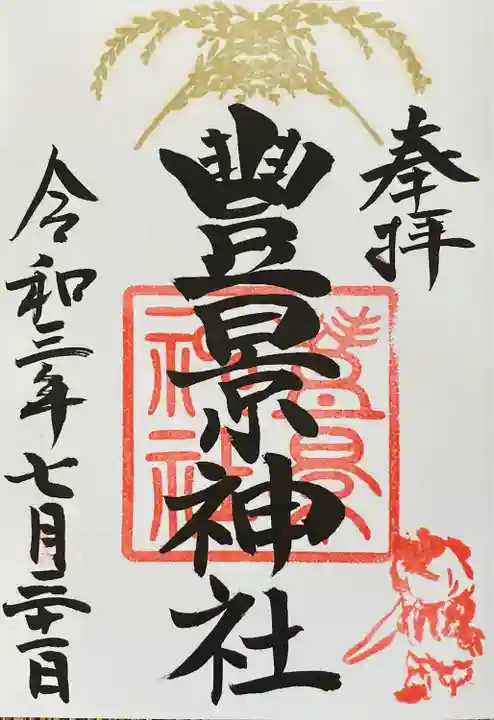 奉拝
豐景神社
豊景
神社
令和三年七月三十一日